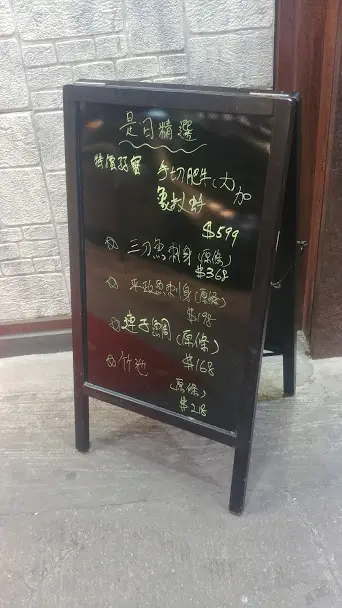 是日精選
特價 手切肥牛(大)加
象拔蚌
$599
三刀魚刺身(原條)
$368
平政魚刺身(原條)
$198
(原條)
$168
竹池
原條)
$218